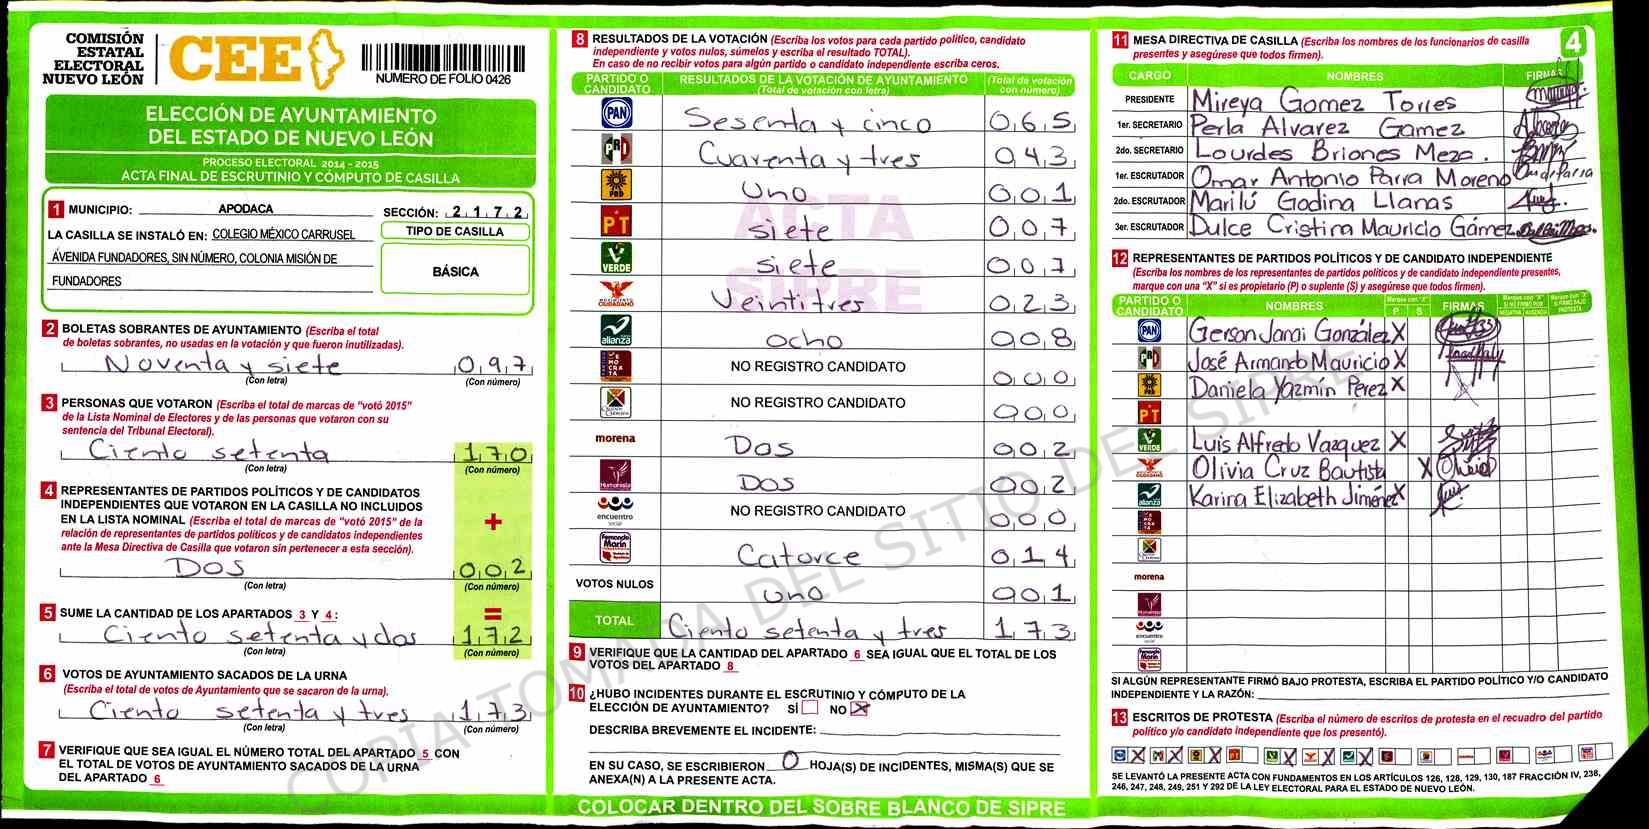 COMISIÓN
ESTATAL
ELECTORAL
NUEVO LEÓN
CEE
NUMERO DE FOLIO 0426
ELECCIÓN DE AYUNTAMIENTO
DEL ESTADO DE NUEVO LEÓN
PROCESO ELECTORAL 2014 - 2015
ACTA FINAL DE ESCRUTINIO Y CÓMPUTO DE CASILLA
1 MUNICIPIO: APODACA SECCIÓN: 2172
LA CASILLA SE INSTALÓ EN: COLEGIO MÉXICO CARRUSEL
TIPO DE CASILLA
AVENIDA FUNDADORES, SIN NÚMERO, COLONIA MISIÓN DE
BÁSICA
FUNDADORES
2 BOLETAS SOBRANTES DE AYUNTAMIENTO (Escriba el total
de boletas sobrantes, no usadas en la votación y que fueron inutilizadas).
Noventa y siete 097
(Con letra) (Con número)
3 PERSONAS QUE VOTARON (Escriba el total de marcas de "votó 2015"
de la Lista Nominal de Electores y de las personas que votaron con su
sentencia del Tribunal Electoral).
Ciento setenta 170
(Con letra) (Con número)
4 REPRESENTANTES DE PARTIDOS POLÍTICOS Y DE CANDIDATOS
INDEPENDIENTES QUE VOTARON EN LA CASILLA NO INCLUIDOS
EN LA LISTA NOMINAL (Escriba el total de marcas de "votó 2015" de la
relación de representantes de partidos políticos y de candidatos independientes
ante la Mesa Directiva de Casilla que votaron sin pertenecer a esta sección).
+
Dos 002
(Con letra) (Con número)
=
5 SUME LA CANTIDAD DE LOS APARTADOS 3 Y 4:
Ciento setenta y dos 172
(Con letra) (Con número)
6 VOTOS DE AYUNTAMIENTO SACADOS DE LA URNA
(Escriba el total de votos de Ayuntamiento que se sacaron de la urna).
Ciento setenta y tres 173
(Con letra) (Con número)
7 VERIFIQUE QUE SEA IGUAL EL NÚMERO TOTAL DEL APARTADO 5 CON
EL TOTAL DE VOTOS DE AYUNTAMIENTO SACADOS DE LA URNA
DEL APARTADO 6
8 RESULTADOS DE LA VOTACIÓN (Escriba los votos para cada partido político, candidato
independiente y votos nulos, súmelos y escriba el resultado TOTAL).
En caso de no recibir votos para algún partido o candidato independiente escriba ceros.
PARTIDO O CANDIDATO RESULTADOS DE LA VOTACIÓN DE AYUNTAMIENTO (Total de votación con letra) (Total de votación con número)
PAN Sesenta y cinco 065
PRI Cuarenta y tres 043
PRD Uno 001
PT siete 007
VERDE siete 007
CIUDADANO Veintitres 023
alianza ocho 008
NO REGISTRO CANDIDATO 000
NO REGISTRO CANDIDATO 000
morena Dos 002
Humanista Dos 002
encuentro social NO REGISTRO CANDIDATO 000
Fernando Marín Catorce 014
VOTOS NULOS uno 001
TOTAL Ciento setenta y tres 173
ACTA
SIPRE
9 VERIFIQUE QUE LA CANTIDAD DEL APARTADO 6 SEA IGUAL QUE EL TOTAL DE LOS
VOTOS DEL APARTADO 8
10 ¿HUBO INCIDENTES DURANTE EL ESCRUTINIO Y CÓMPUTO DE LA
ELECCIÓN DE AYUNTAMIENTO? SÍ NO X
DESCRIBA BREVEMENTE EL INCIDENTE:
EN SU CASO, SE ESCRIBIERON 0 HOJA(S) DE INCIDENTES, MISMA(S) QUE SE
ANEXA(N) A LA PRESENTE ACTA.
COLOCAR DENTRO DEL SOBRE BLANCO DE SIPRE
COPIA TOMADA DEL SITIO DEL SIPRE
11 MESA DIRECTIVA DE CASILLA (Escriba los nombres de los funcionarios de casilla
presentes y asegúrese que todos firmen).
4
CARGO NOMBRES FIRMAS
PRESIDENTE Mireya Gomez Torres
1er. SECRETARIO Perla Alvarez Gamez
2do. SECRETARIO Lourdes Briones Meza.
1er. ESCRUTADOR Omar Antonio Parra Moreno
2do. ESCRUTADOR Marilú Godina Llanas
3er. ESCRUTADOR Dulce Cristina Mauricio Gámez
12 REPRESENTANTES DE PARTIDOS POLÍTICOS Y DE CANDIDATO INDEPENDIENTE
(Escriba los nombres de los representantes de partidos políticos y de candidato independiente presentes,
marque con una "X" si es propietario (P) o suplente (S) y asegúrese que todos firmen).
PARTIDO O CANDIDATO NOMBRES Marque con "X" P S FIRMAS Marque con "X" SI NO FIRMÓ POR NEGATIVA AUSENCIA Marque con "X" SI FIRMÓ BAJO PROTESTA
PAN Gerson Jarai González X
PRI José Armando Mauricio X
PRD Daniela Yazmín Perez X
PT
VERDE Luis Alfredo Vazquez X
CIUDADANO Olivia Cruz Bautista X
alianza Karina Elizabeth Jiménez X
morena
Humanista
encuentro social
SI ALGÚN REPRESENTANTE FIRMÓ BAJO PROTESTA, ESCRIBA EL PARTIDO POLÍTICO Y/O CANDIDATO
INDEPENDIENTE Y LA RAZÓN:
13 ESCRITOS DE PROTESTA (Escriba el número de escritos de protesta en el recuadro del partido
político y/o candidato independiente que los presentó).
X X X X X X
SE LEVANTÓ LA PRESENTE ACTA CON FUNDAMENTOS EN LOS ARTÍCULOS 126, 128, 129, 130, 187 FRACCIÓN IV, 238,
246, 247, 248, 249, 251 Y 292 DE LA LEY ELECTORAL PARA EL ESTADO DE NUEVO LEÓN.